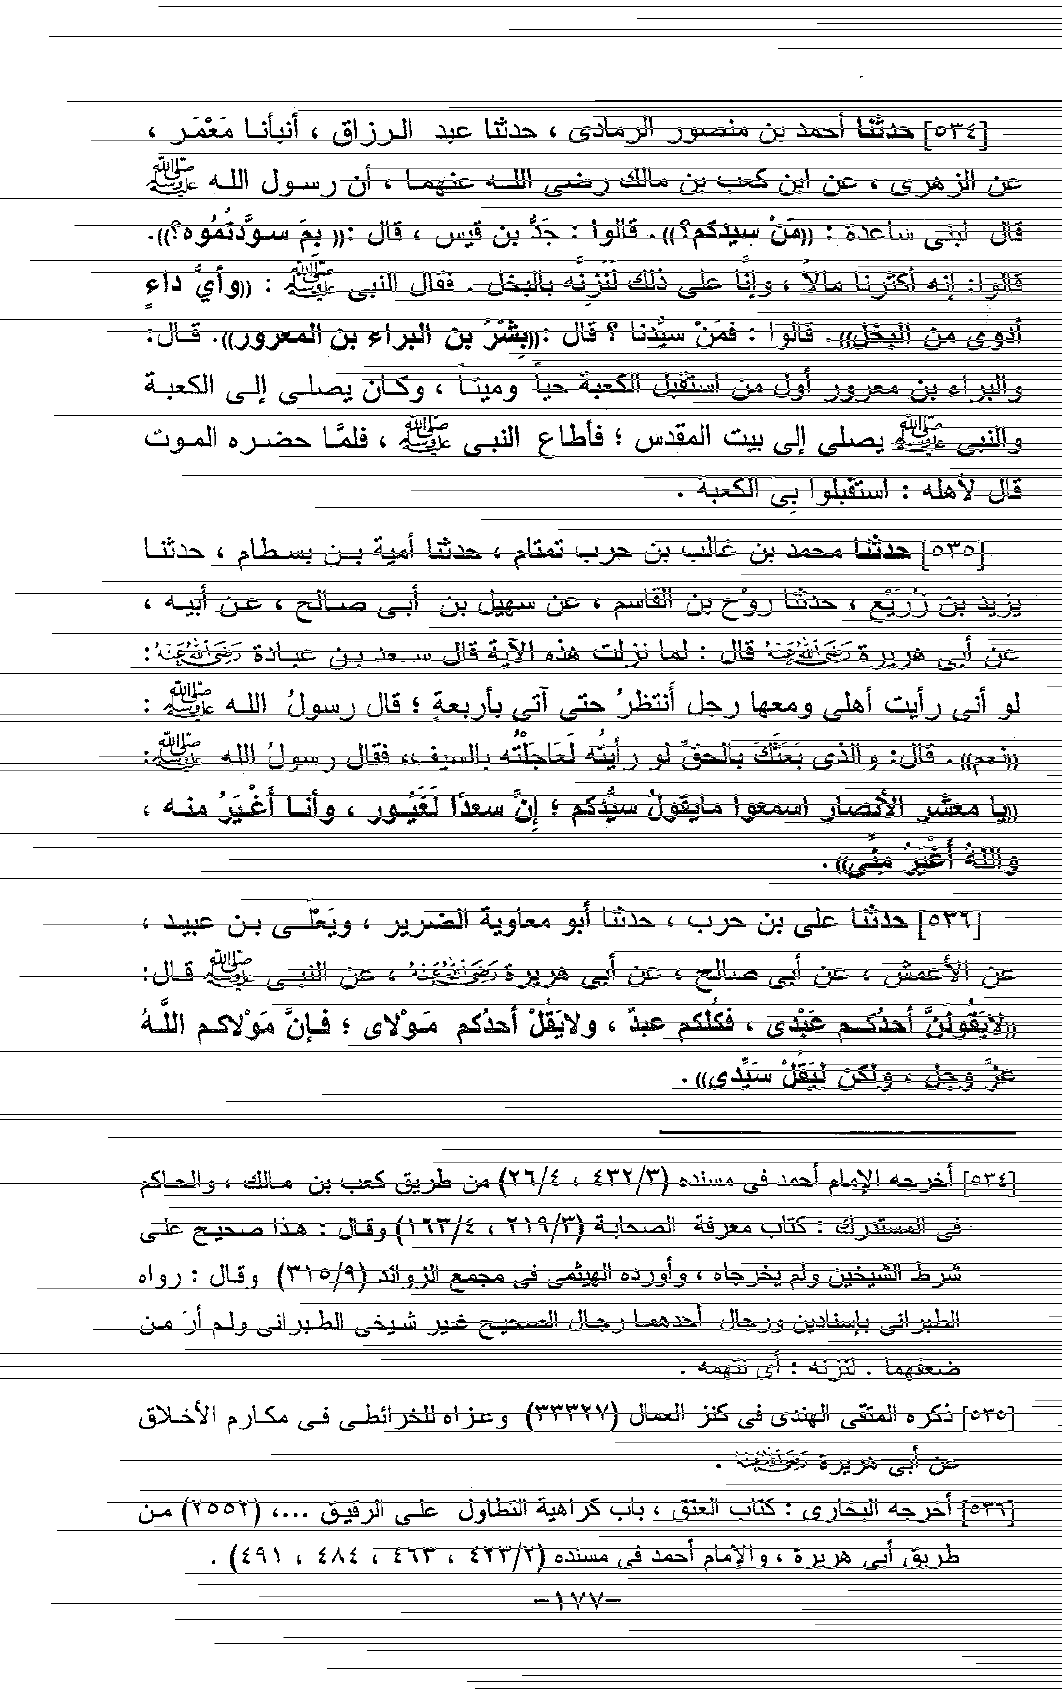 [٥٣٤] حدثنا أحمد بن منصور الرمادى ، حدثنا عبد الرزاق ، أنبأنا مَعْمَر ،
عن الزهرى ، عن ابن كعب بن مالك رضى اللـه عنهما ، أن رسول اللـه ﷺ
قال لبنى ساعدة : ((مَنْ سيدكم؟)). قالوا : جَدُّ بن قيس ، قال :(( بِمَ سوَّدتُمُوه؟)).
قالوا: إنه أكثرنا مالاً ، وإنَّا على ذلك لَنَزِنُّه بالبخل . فقال النبى ﷺ : ((وأىُّ داءٍ
أدوى من البخل)). قالوا : فمَنْ سيُّدنا ؟ قال :((بِشْرُ بن البراء بن المعرور)). قال:
والبراء بن معرور أول من استقبل الكعبة حياً وميتاً ، وكان يصلى إلى الكعبة
والنبى ﷺ يصلى إلى بيت المقدس ؛ فأطاع النبى ﷺ ، فلمَّا حضره الموت
قال لأهله : استقبلوا بِى الكعبة .
[٥٣٥] حدثنا محمد بن غالب بن حرب تمتام ، حدثنا أمية بن بسطام ، حدثنا
يزيد بن زُرَيْع ، حدثنا روْح بن القاسم ، عن سهيل بن أبى صالح ، عن أبيه ،
عن أبى هريرة رَضِيَ اللهُ عَنْهُ قال : لما نزلت هذه الآية قال سعد بن عبادة رَضِيَ اللهُ عَنْهُ:
لو أنى رأيت أهلى ومعها رجل أَنتظرُ حتى آتى بأربعةٍ ؛ قال رسولُ اللـه ﷺ :
((نعم)) . قال: والذى بَعَثَكَ بالحقِّ لو رأيتُه لَعَاجَلْتُه بالسيف، فقال رسولُ اللـه ﷺ:
((يا معشر الأنصار اسمعوا مايقولُ سيُّدكم ؛ إنَّ سعدًا لَغَيُور ، وأنا أَغْيَرُ منه ،
واللهُ أَغْيَرُ مِنِّى)) .
[٥٣٦] حدثنا على بن حرب ، حدثنا أبو معاوية الضرير ، ويَعْلَى بن عبيد ،
عن الأعمش ، عن أبى صالح ، عن أبى هريرة رَضِيَ اللهُ عَنْهُ ، عن النبى ﷺ قال:
((لايَقُولَنَّ أحدُكم عَبْدى ، فكُلكم عبدٌ ، ولايَقُلْ أحدُكم مولاى ؛ فإنَّ مَوْلاكم اللَّهُ
عزَّ وجل ، ولكن لِيَقُلْ سَيِّدى)) .
[٥٣٤] أخرجه الإمام أحمد فى مسنده (٤٣٢/٣ ، ٢٦/٤) من طريق كعب بن مالك ، والحاكم
فى المستدرك : كتاب معرفة الصحابة (٢١٩/٣ ، ١٦٣/٤) وقال : هذا صحيح على
شرط الشيخين ولم يخرجاه ، وأورده الهيثمى فى مجمع الزوائد (٣١٥/٩) وقال : رواه
الطبرانى بإسنادين ورجال أحدهما رجال الصحيح غير شيخى الطبرانى ولم أرَ من
ضعفهما . لنزنه : أى نتهمه .
[٥٣٥] ذكره المتقى الهندى فى كنز العمال (٣٣٣٢٧) وعزاه للخرائطى فى مكارم الأخلاق
عن أبى هريرة رَضِيَ اللهُ عَنْهُ .
[٥٣٦] أخرجه البخارى : كتاب العتق ، باب كراهية التطاول على الرقيق ...، (٢٥٥٢) من
طريق أبى هريرة ، والإمام أحمد فى مسنده (٤٢٣/٢ ، ٤٦٣ ، ٤٨٤ ، ٤٩١) .
-١٧٧-